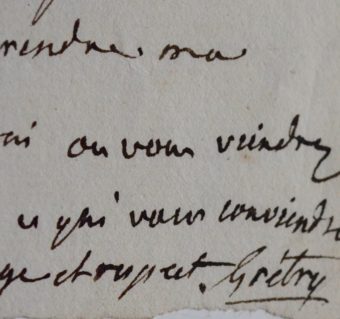 rendre ma
rai ou vous viendrez
ce qui vous conviendra
ge et respect. Grétry